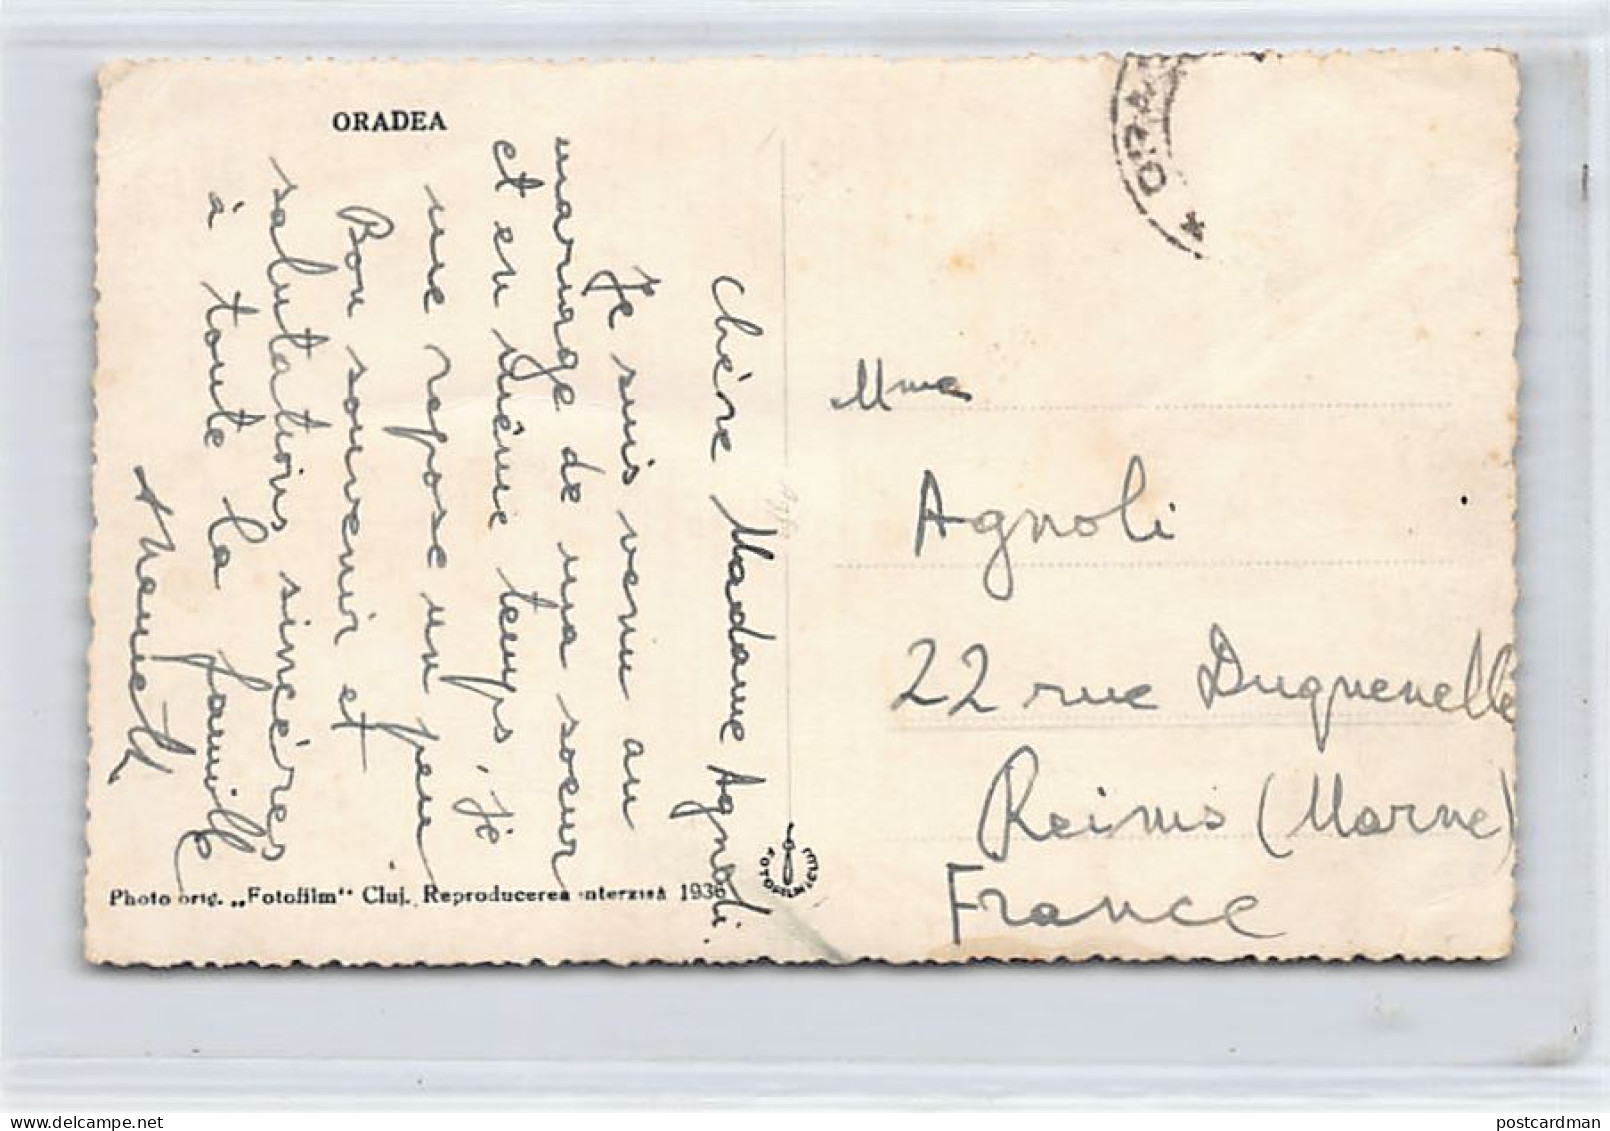 ORADEA
Chére Madame Agnoli.
Je suis venu au
mariage de ma soeur
et en même temps Je
me repose un peu
Bon souvenir et
salutations sincéres
à toute la famille
Mme
Agnoli
22 rue Duquenelle
Reims (Marne)
France
Photo orig. „Fotofilm" Cluj. Reproducerea interzisă 1936
FOTOFILM CLUJ
* ORA
postcardman